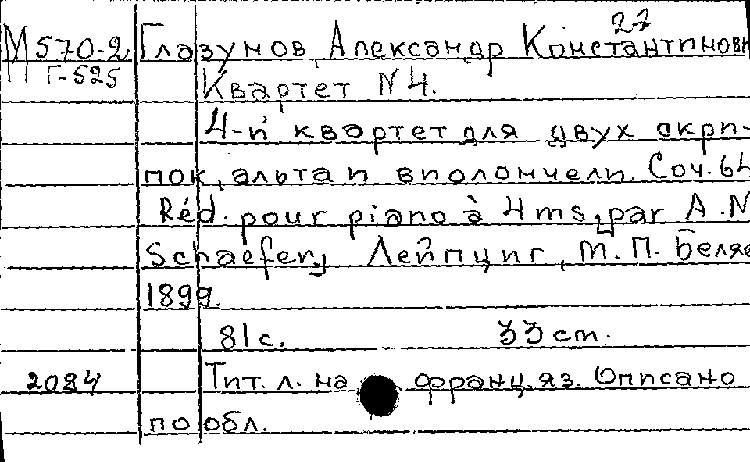 27
М570-2 Глазунов, Александр Константинович
Г-525
Квартет N4.
4-й квартет для двух скрип-
пок, альта и виолончели. Соч. 64
Réd. pour piano à 4ms, par A. N.
Schaefer, Лейпциг, М. П. Беляе
1899.
81с. 33 cm.
2084 Тит. л. на франц. яз. Описано
по обл.